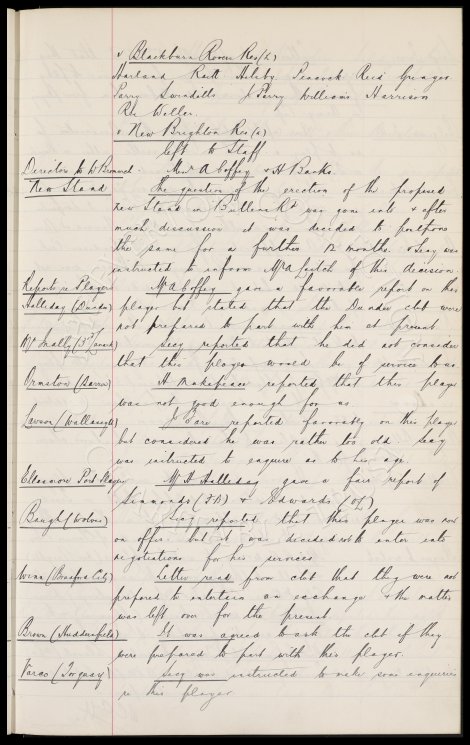 v Blackburn Rovers Res (h)
Harland Raitt Helsby Peacock Reid Grainger
Parry Swindells J Parry Williams Harrison
Res Weller.
v New Brighton Res (a)
left to Staff
Directors to W Bromwich Messrs A Coffey & H Banks.
New Stand The question of the erection of the proposed
new Stand in Bullens Rd was gone into & after
much discussion it was decided to postpone
the same for a further 12 months & Secy was
instructed to inform Mr A Leitch of this decision.
Report re Players Mr A Coffey gave a favorable report on this
Halliday (Dundee) player but stated that the Dundee club were
not prepared to part with him at present
McInally (3rd Lanark) Secy reported that he did not consider
that this player would be of service to us
Ormston (Barrow) H Makepeace reported that this player
was not good enough for us.
Lawson (Wallasey) J reported favorably on this player
but considered he was rather too old. Secy
was instructed to enquire as to his age.
Ellesmere Port Players Mr H Halliday gave a fair report of
Simmonds (I.R) & Edwards (O L)
Baugh (Wolves) Secy reported that this player was now
on offer but it was decided not to enter into
negotiations for his services
Wynn (Bradford City) Letter read from club that they were not
prepared to entertain an exchange & the matter
was left over for the present.
Brown (Huddersfield) It was agreed to ask the club if they
were prepared to part with this player.
Varco (Torquay) Secy was instructed to make some inquiries
re this player